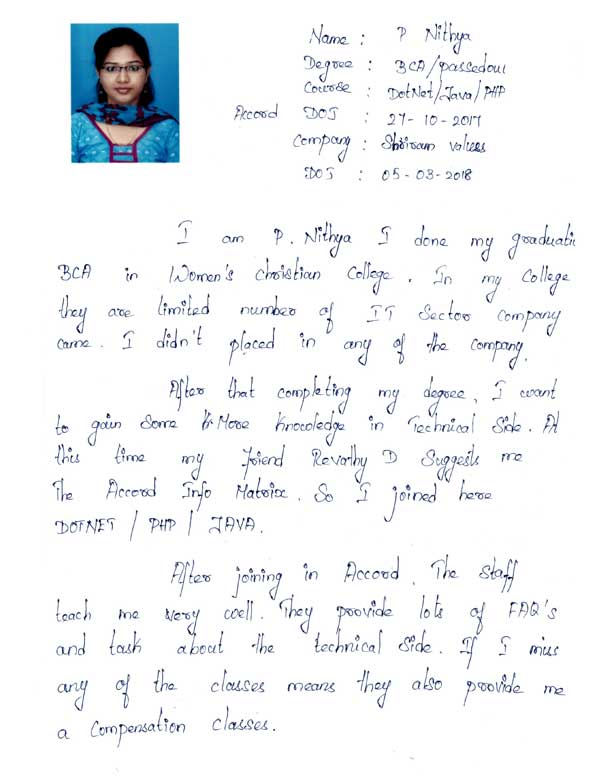 Name : P Nithya
Degree : BCA/passedout
Course : DotNet/Java/PHP
Accord DOJ : 27-10-2017
Company : Shriram values
DOJ : 05-03-2018
I am P. Nithya I done my graduati
BCA in Women's christian College. In my College
they are limited number of IT Sector Company
came. I didn't placed in any of the company.
After that completing my degree, I want
to gain some More knowledge in Technical Side. At
this time my friend Revathy D Suggests me
The Accord Info Matrix. So I joined here
DOTNET / PHP / JAVA.
After joining in Accord, The staff
teach me very well. They provide lots of FAQ's
and task about the technical Side. If I miss
any of the classes means they also provide me
a Compensation classes.